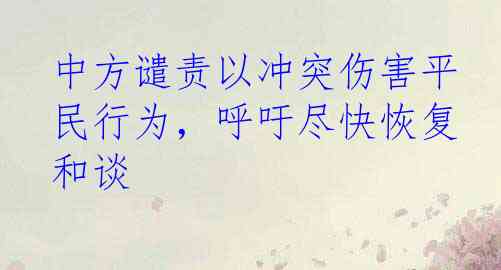 中方谴责以冲突伤害平
民行为，呼吁尽快恢复
和谈